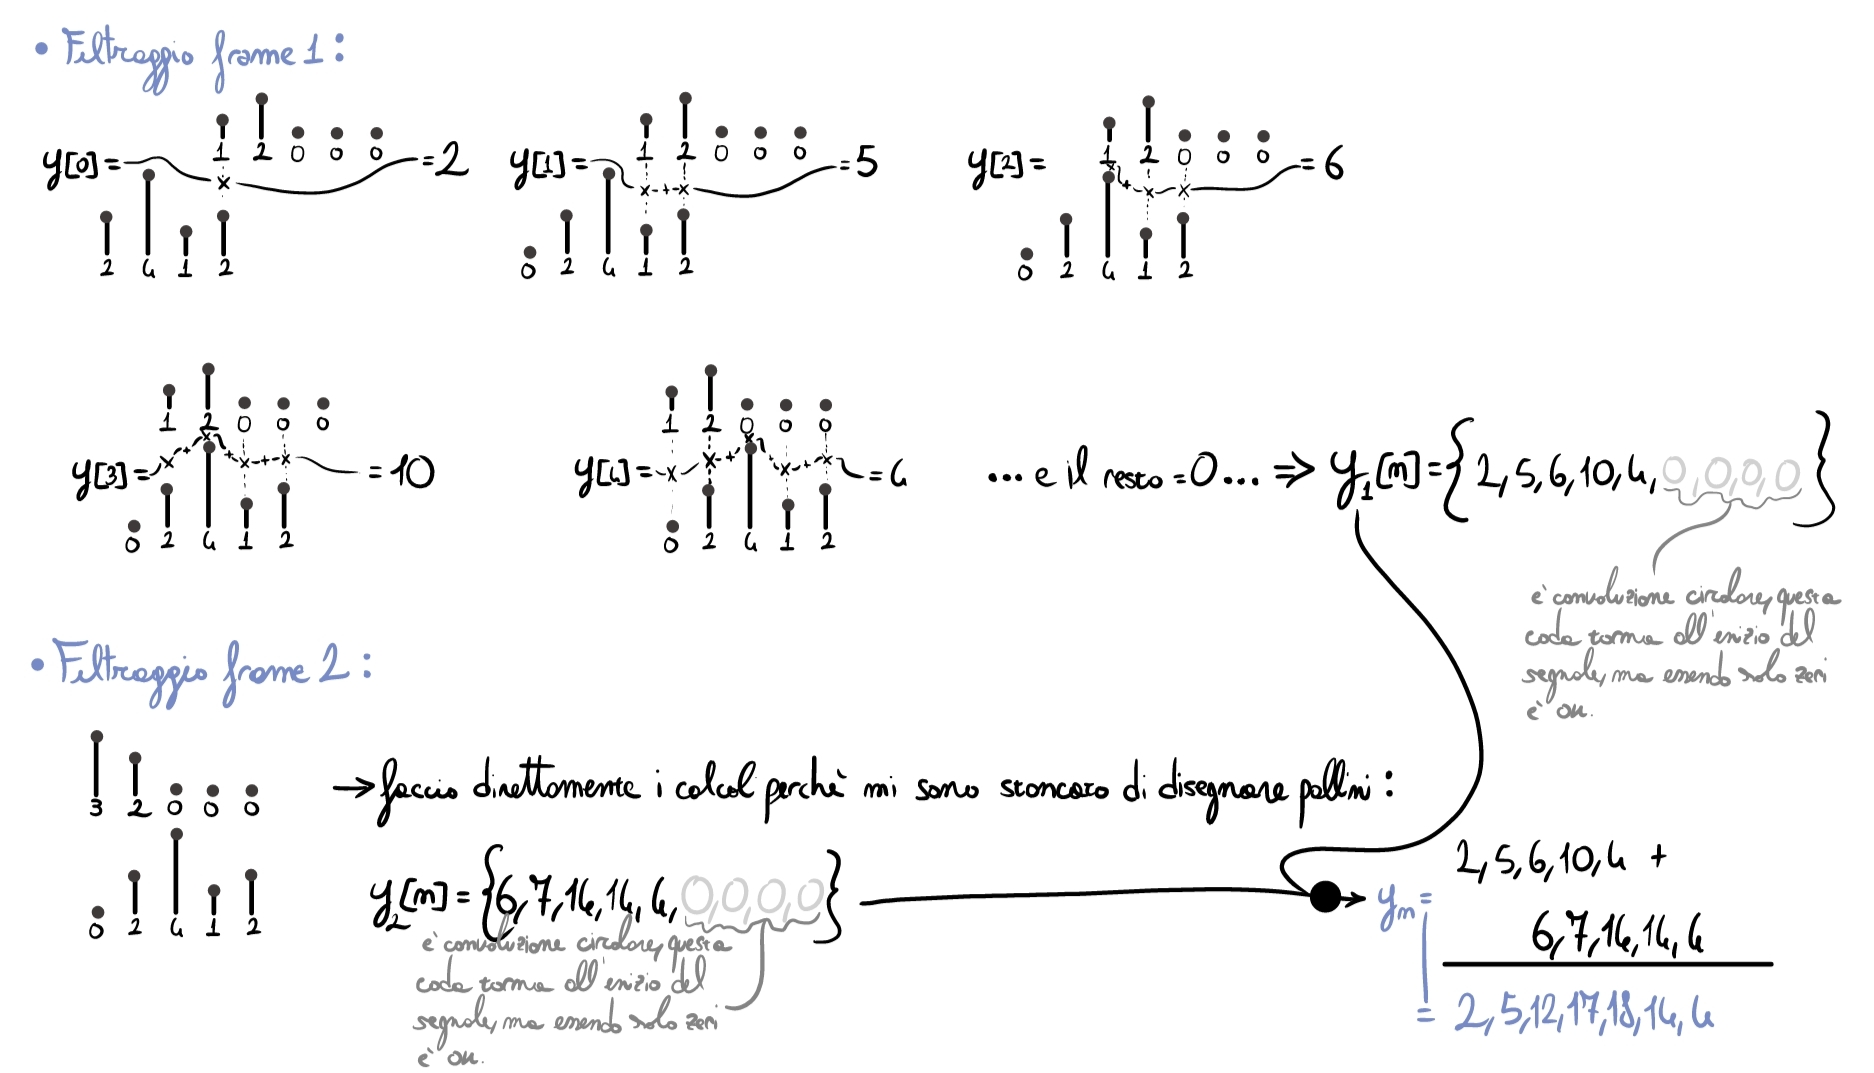 • Filtraggio frame 1:
1 2 0 0 0
y[0]= x =2
2 4 1 2
1 2 0 0 0
y[1]= x-+-x =5
0 2 4 1 2
1 2 0 0 0
y[2]= x + x x =6
0 2 4 1 2
1 2 0 0 0
y[3]= x + x + x + x =10
0 2 4 1 2
1 2 0 0 0
y[4]= x x + x x + x =4
0 2 4 1 2
... e il resto =0... ⇒ y₁[n]={2,5,6,10,4,0,0,0,0}
è convoluzione circolare, questa
coda torna all'inizio del
segnale, ma essendo solo zeri
è ok.
• Filtraggio frame 2:
3 2 0 0 0
0 2 4 1 2
→ faccio direttamente i calcoli perchè mi sono stancato di disegnare pallini:
y₂[n]={6,7,14,14,4,0,0,0,0}
è convoluzione circolare, questa
coda torna all'inizio del
segnale, ma essendo solo zeri
è ok.
2,5,6,10,4 +
yₙ=
6,7,14,14,4
= 2,5,12,17,18,14,4